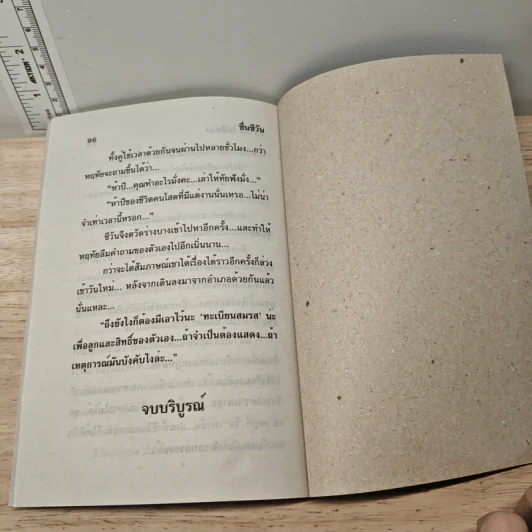 ๑๖ ชื่นชีวัน
ทั้งคู่ใช้เวลาด้วยกันจนผ่านไปหลายชั่วโมง...กว่า
หฤทัยจะถามขึ้นได้ว่า...
"ห้าปี...คุณทำอะไรมั่งคะ...เล่าให้ทัยฟังมั่ง..."
"ห้าปีของชีวิตคนโสดที่มีแต่งานนั่นเหรอ...ไม่น่า
จำเท่าเวลานี้หรอก..."
ชีวันจึงตวัดร่างบางเข้าไปหาอีกครั้ง...และทำให้
หฤทัยลืมคำถามของตัวเองไปอีกเนิ่นนาน...
กว่าจะได้สัมภาษณ์เขาได้เรื่องได้ราวอีกครั้งก็ล่วง
เข้าวันใหม่... หลังจากเดินลงมาจากอำเภอด้วยกันแล้ว
นั่นแหละ...
"ถึงยังไงก็ต้องมีเอาไว้นะ 'ทะเบียนสมรส' น่ะ
เพื่อลูกและสิทธิ์ของตัวเอง...ถ้าจำเป็นต้องแสดง...ถ้า
เหตุการณ์มันบังคับไงล่ะ..."
จบบริบูรณ์
1
2